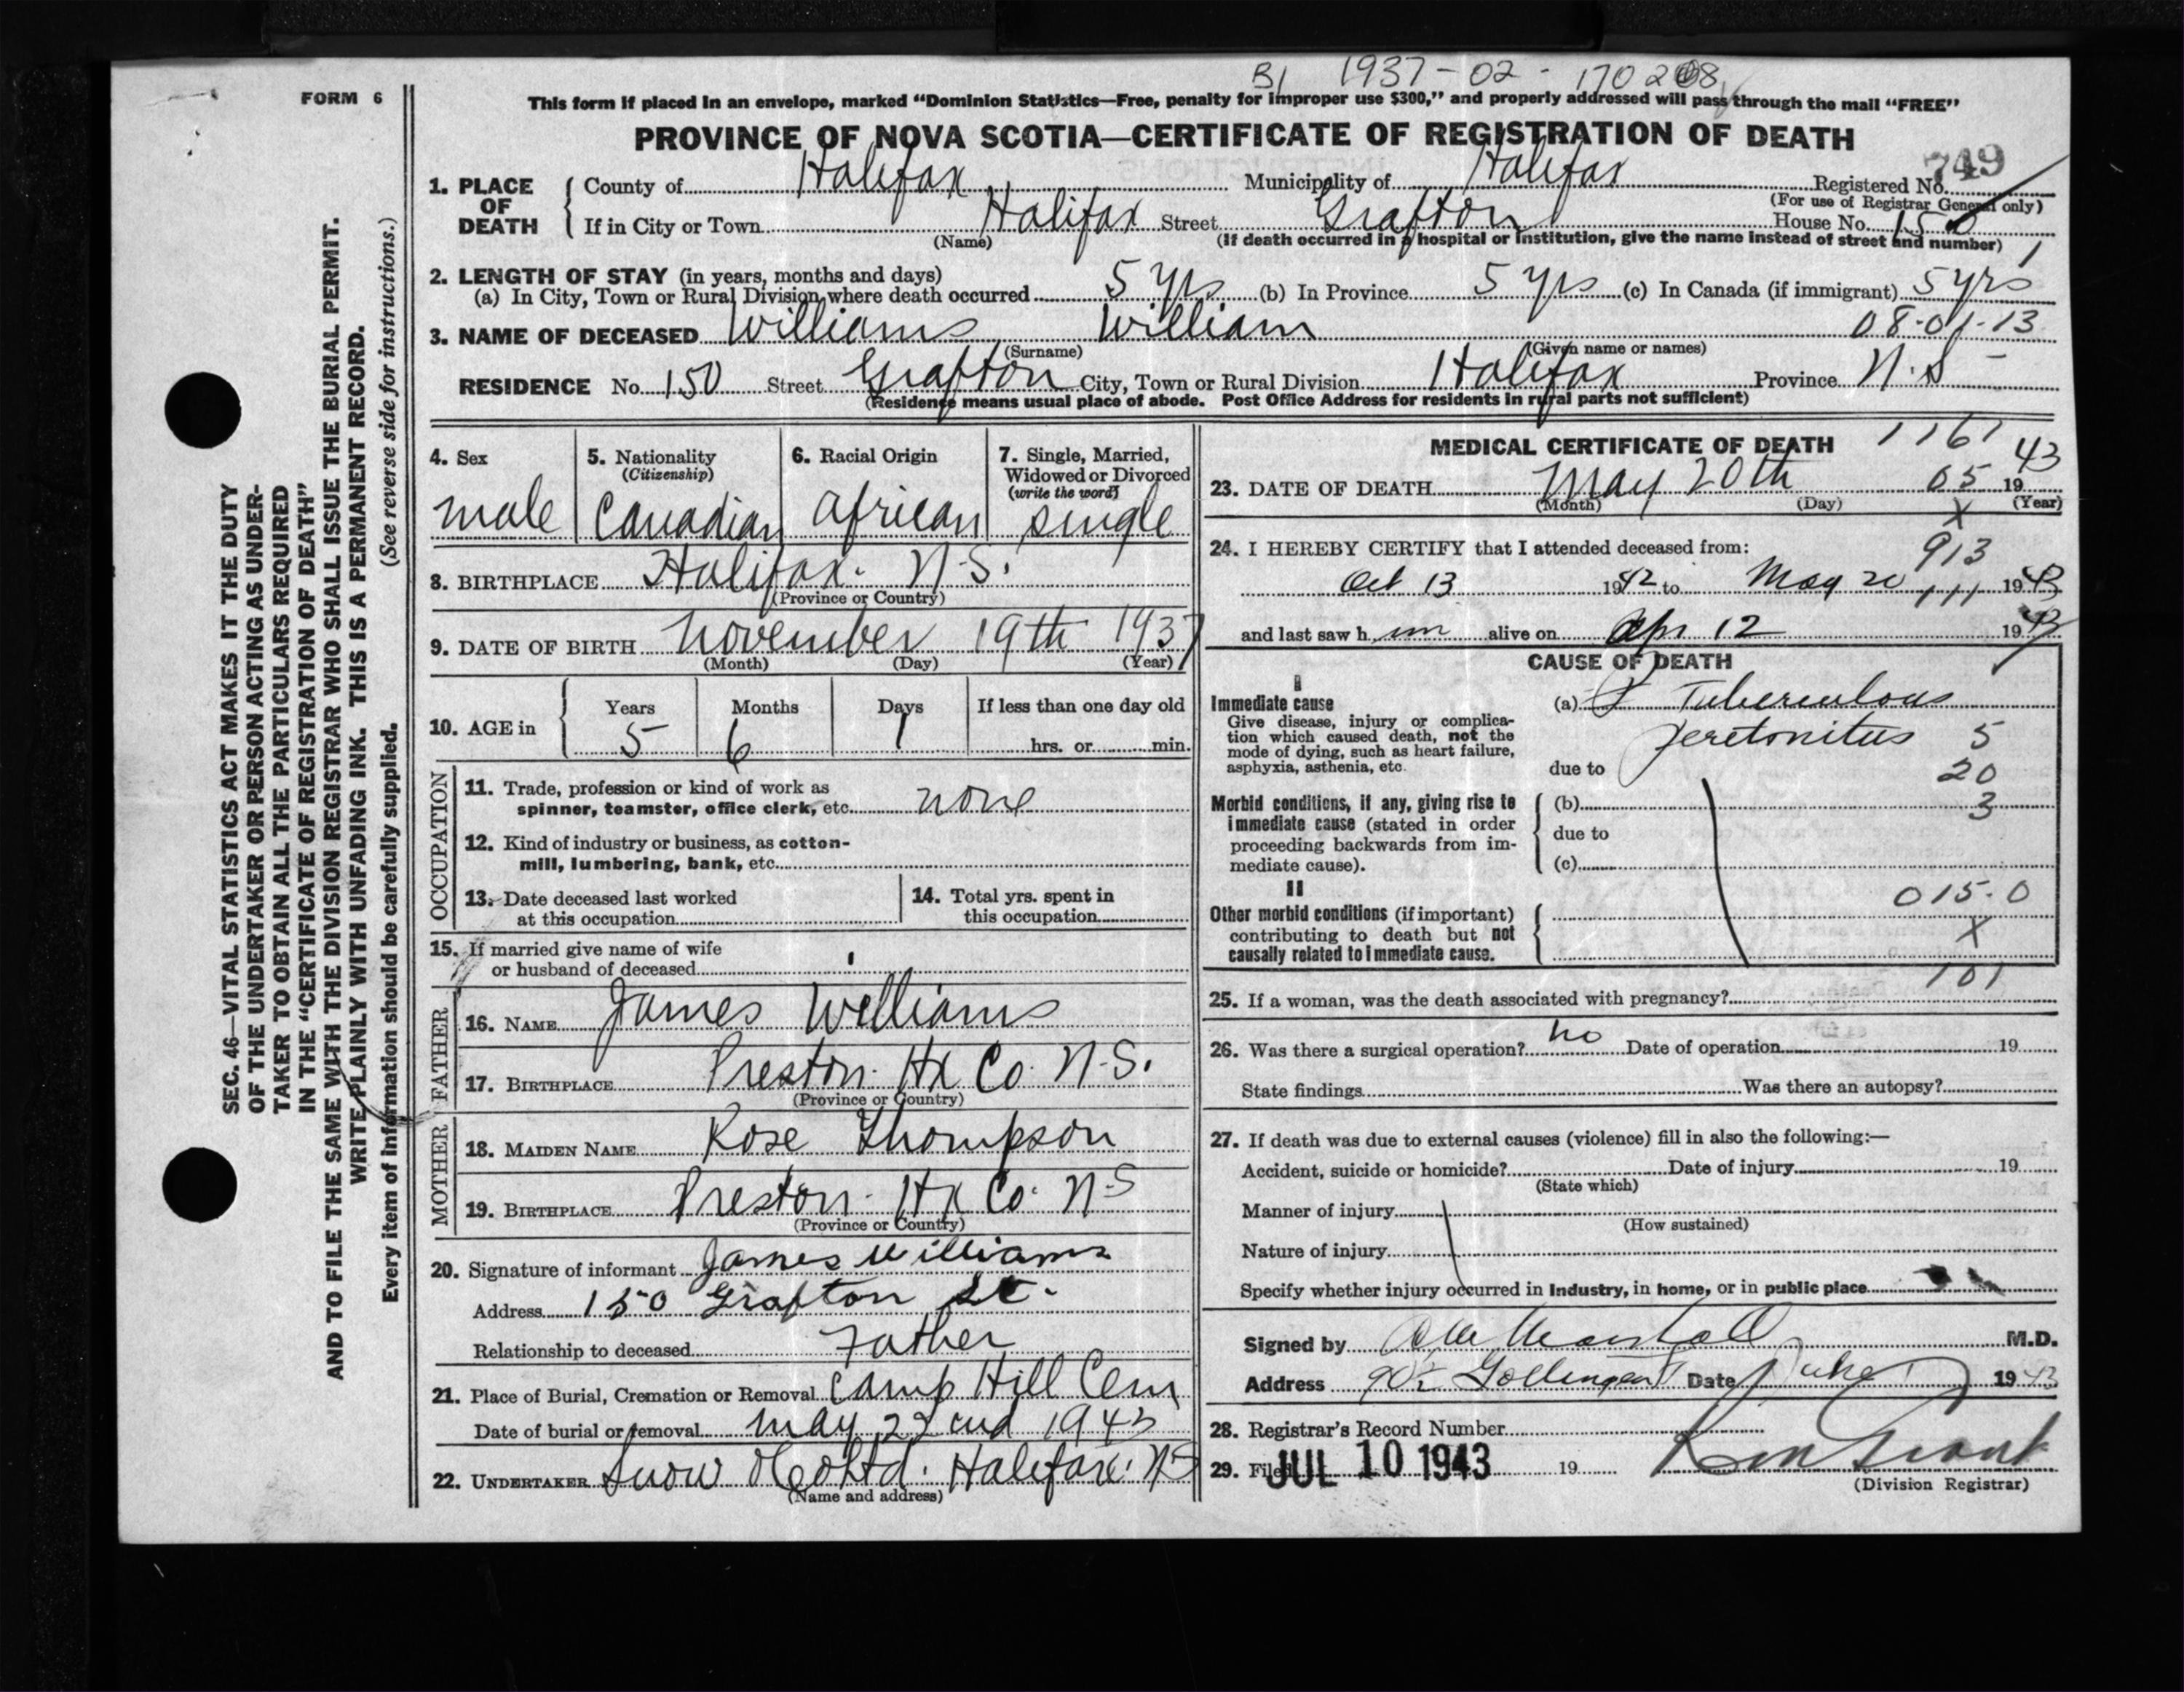 B1 1937-02-170208
FORM 6
This form if placed in an envelope, marked “Dominion Statistics—Free, penalty for improper use $300,” and properly addressed will pass through the mail “FREE”
PROVINCE OF NOVA SCOTIA—CERTIFICATE OF REGISTRATION OF DEATH
749
1. PLACE OF DEATH { County of Halifax Municipality of Halifax Registered No.
(For use of Registrar General only)
If in City or Town Halifax Street Grafton House No. 150
(Name) (If death occurred in a hospital or institution, give the name instead of street and number) 1
2. LENGTH OF STAY (in years, months and days)
(a) In City, Town or Rural Division where death occurred 5 yrs (b) In Province 5 yrs (c) In Canada (if immigrant) 5 yrs
3. NAME OF DECEASED Williams William 08-01-13
(Surname) (Given name or names)
RESIDENCE No. 150 Street Grafton City, Town or Rural Division Halifax Province N.S
(Residence means usual place of abode. Post Office Address for residents in rural parts not sufficient)
4. Sex
male
5. Nationality
(Citizenship)
Canadian
6. Racial Origin
African
7. Single, Married,
Widowed or Divorced
(write the word)
single
8. BIRTHPLACE Halifax. N.S.
(Province or Country)
9. DATE OF BIRTH November 19th 1937
(Month) (Day) (Year)
10. AGE in { Years Months Days If less than one day old
5 6 1 hrs. or min.
OCCUPATION
11. Trade, profession or kind of work as
spinner, teamster, office clerk, etc. none
12. Kind of industry or business, as cotton-
mill, lumbering, bank, etc.
13. Date deceased last worked
at this occupation
14. Total yrs. spent in
this occupation
15. If married give name of wife
or husband of deceased
FATHER
16. NAME James Williams
17. BIRTHPLACE Preston. Hx Co. N.S.
(Province or Country)
MOTHER
18. MAIDEN NAME Rose Thompson
19. BIRTHPLACE Preston. Hx Co. N.S
(Province or Country)
20. Signature of informant James Williams
Address 150 Grafton St.
Relationship to deceased Father
21. Place of Burial, Cremation or Removal Camp Hill Cem
Date of burial or removal May 22cnd 1943
22. UNDERTAKER Snow & Co Ltd. Halifax. NS
(Name and address)
MEDICAL CERTIFICATE OF DEATH 1161
23. DATE OF DEATH May 20th 05 1943
(Month) (Day) (Year)
X
24. I HEREBY CERTIFY that I attended deceased from: 913
Oct 13 1942 to May 20 111 1943
and last saw h im alive on Apr 12 1943
CAUSE OF DEATH
I
Immediate cause
Give disease, injury or complica-
tion which caused death, not the
mode of dying, such as heart failure,
asphyxia, asthenia, etc.
(a) Tuberculous
Peretonitus 5
due to 20
Morbid conditions, if any, giving rise to
immediate cause (stated in order
proceeding backwards from im-
mediate cause).
(b) 3
due to
(c)
II
Other morbid conditions (if important)
contributing to death but not
causally related to immediate cause.
015.0
X
101
25. If a woman, was the death associated with pregnancy?
26. Was there a surgical operation? no Date of operation 19
State findings Was there an autopsy?
27. If death was due to external causes (violence) fill in also the following:—
Accident, suicide or homicide? Date of injury 19
(State which)
Manner of injury
(How sustained)
Nature of injury
Specify whether injury occurred in Industry, in home, or in public place
Signed by Marshall M.D.
Address 90½ Date 1943
28. Registrar's Record Number
29. Filed JUL 10 1943 19
(Division Registrar)
SEC. 46—VITAL STATISTICS ACT MAKES IT THE DUTY
OF THE UNDERTAKER OR PERSON ACTING AS UNDER-
TAKER TO OBTAIN ALL THE PARTICULARS REQUIRED
IN THE “CERTIFICATE OF REGISTRATION OF DEATH”
AND TO FILE THE SAME WITH THE DIVISION REGISTRAR WHO SHALL ISSUE THE BURIAL PERMIT.
WRITE PLAINLY WITH UNFADING INK. THIS IS A PERMANENT RECORD.
Every item of information should be carefully supplied. (See reverse side for instructions.)